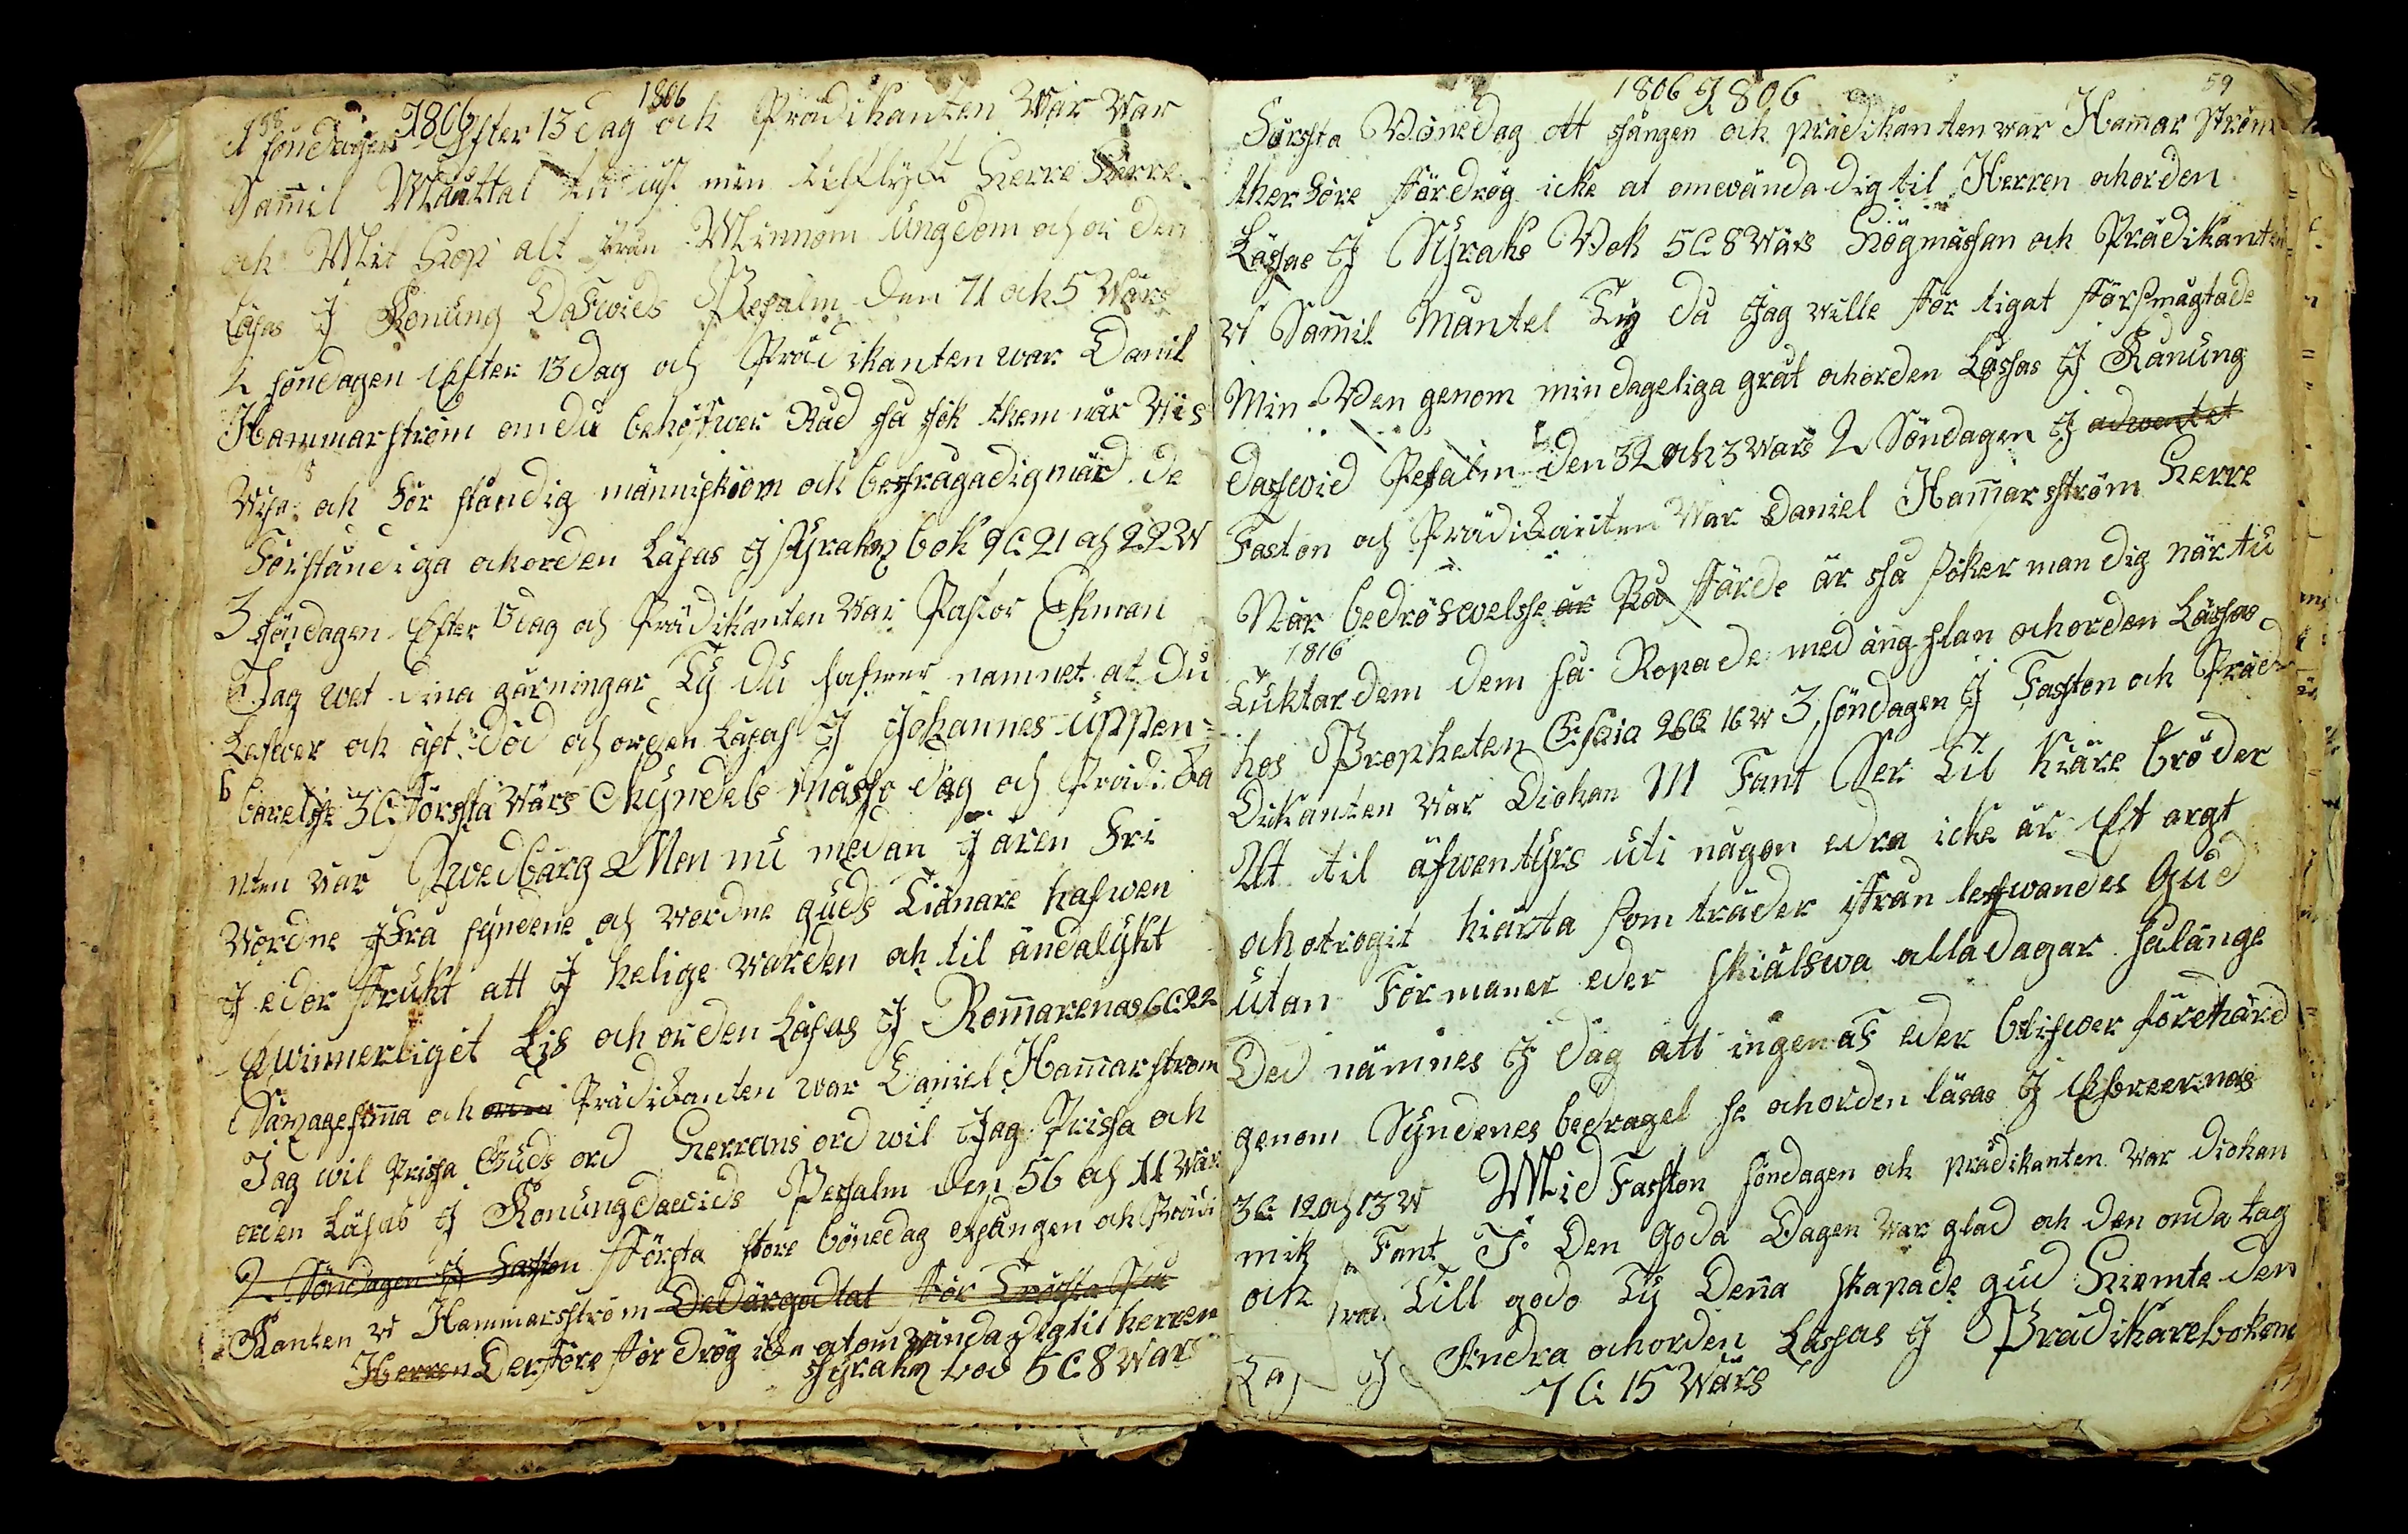 58 1806 1806
1 söndagen Efter 13 dag och Prädikanten Wär War
Sam̅il Mänttal tu äst min tilflyckt Herre Herre
och Mit Hop alt ifrån Minnom ungdom och or den
Läsas J Konung Dafwids Pesalm Den 71 och 5 Wärs
2 söndagen Efter 13 dag och Prädikanten war Danil
Hammarström om du behöfwer Råd så sök them när Wis
Wisa och För ståndig människiom och befragadig märd de
Förståndiga och orden Läsas J syrakz bok 9 C 21 och 22 W
3 söndagen Efter 13 dag och Prädikanten War Pastor Ekman
Jag wet dina gärningar Ty du hafwer namnet at Du
Lefwer och äst död och orden Läsas J Johannes uppen=
barelse 3 C Första Wärs Kyndels mässo dag och Prädika
nten war Swedbärg Men nu medan J ären Fri
Wordne Jfrå syndene och wordne guds Tiänare hafwen
J eder frukt att J helige warden och til ändalykt
Ewinnerligit Lis och orden Läsas J Rom̅arenas 6 C 22
Säxagesim̅a och orden Prädikanten war Daniel Ham̅arstrom
Jag wil Prissa Guds ord Herrans ord wil Jag Prissa och
orden Läsas J Konung dawids Pesalm den 56 och 11 Wär
2 Söndagen J Faston Första store bönedag otsången och Prädi
Kanten W Hammarsström Ded är godt at För Trösta sig
Herren Derföre För drög icke at om Wända dig til herren
syrakz bod 5 C 8 Wärs
1806 1806 59
Förssta Bönedag ott sången och prädikanten war Ham̅ar Ström
ther Före Fördrög icke at omwända dig til Herren och orden
Lässas J Syraks Bok 5 C 8 Wärs Högmässan och Prädikanten
W Sam̅il Mäntel Ty da Jag wille För tigat Försmägtade
Min Ben genom min dageliga gråt och orden Lässas J Kanung
dafwid Pesalm den 32 och 3 Wars 2 Söndagen J adwentet
Faston och Prädikanten War Daniel Ham̅arsström Herre
När bedröfwelsse är På Färde är så söker man dig när tu
1816
Tuktar dem dem så Ropade med ängslan och orden Lässas
hos Propheten Esaia 26 C 16 W 3 söndagen J Faston och Präd
Dikanten War Diokan M Fant Ser Til Kiäre bröder
At til äfwentyrs uti någon edra icke är Ett argt
och otrogit hiärta som träder ifrån lefwandes Gud
utan Förmaner eder skiälfwa alla dagar sålänge
Ded nämnes J dag att ingen af eder blifwer förehärd
genom Syndenes bedragel se och orden läsas J Ebreernas
3 C 12 och 13 W Mid Faston söndagen och prädikanten War diokan
mik Fant J Den Goda Dagen War glad och den onda tag
och Till godo Ty Den̅a skapade gud Hiemte den
Andra och orden Lässas J Prädikarebokene
7 C 15 Wärs